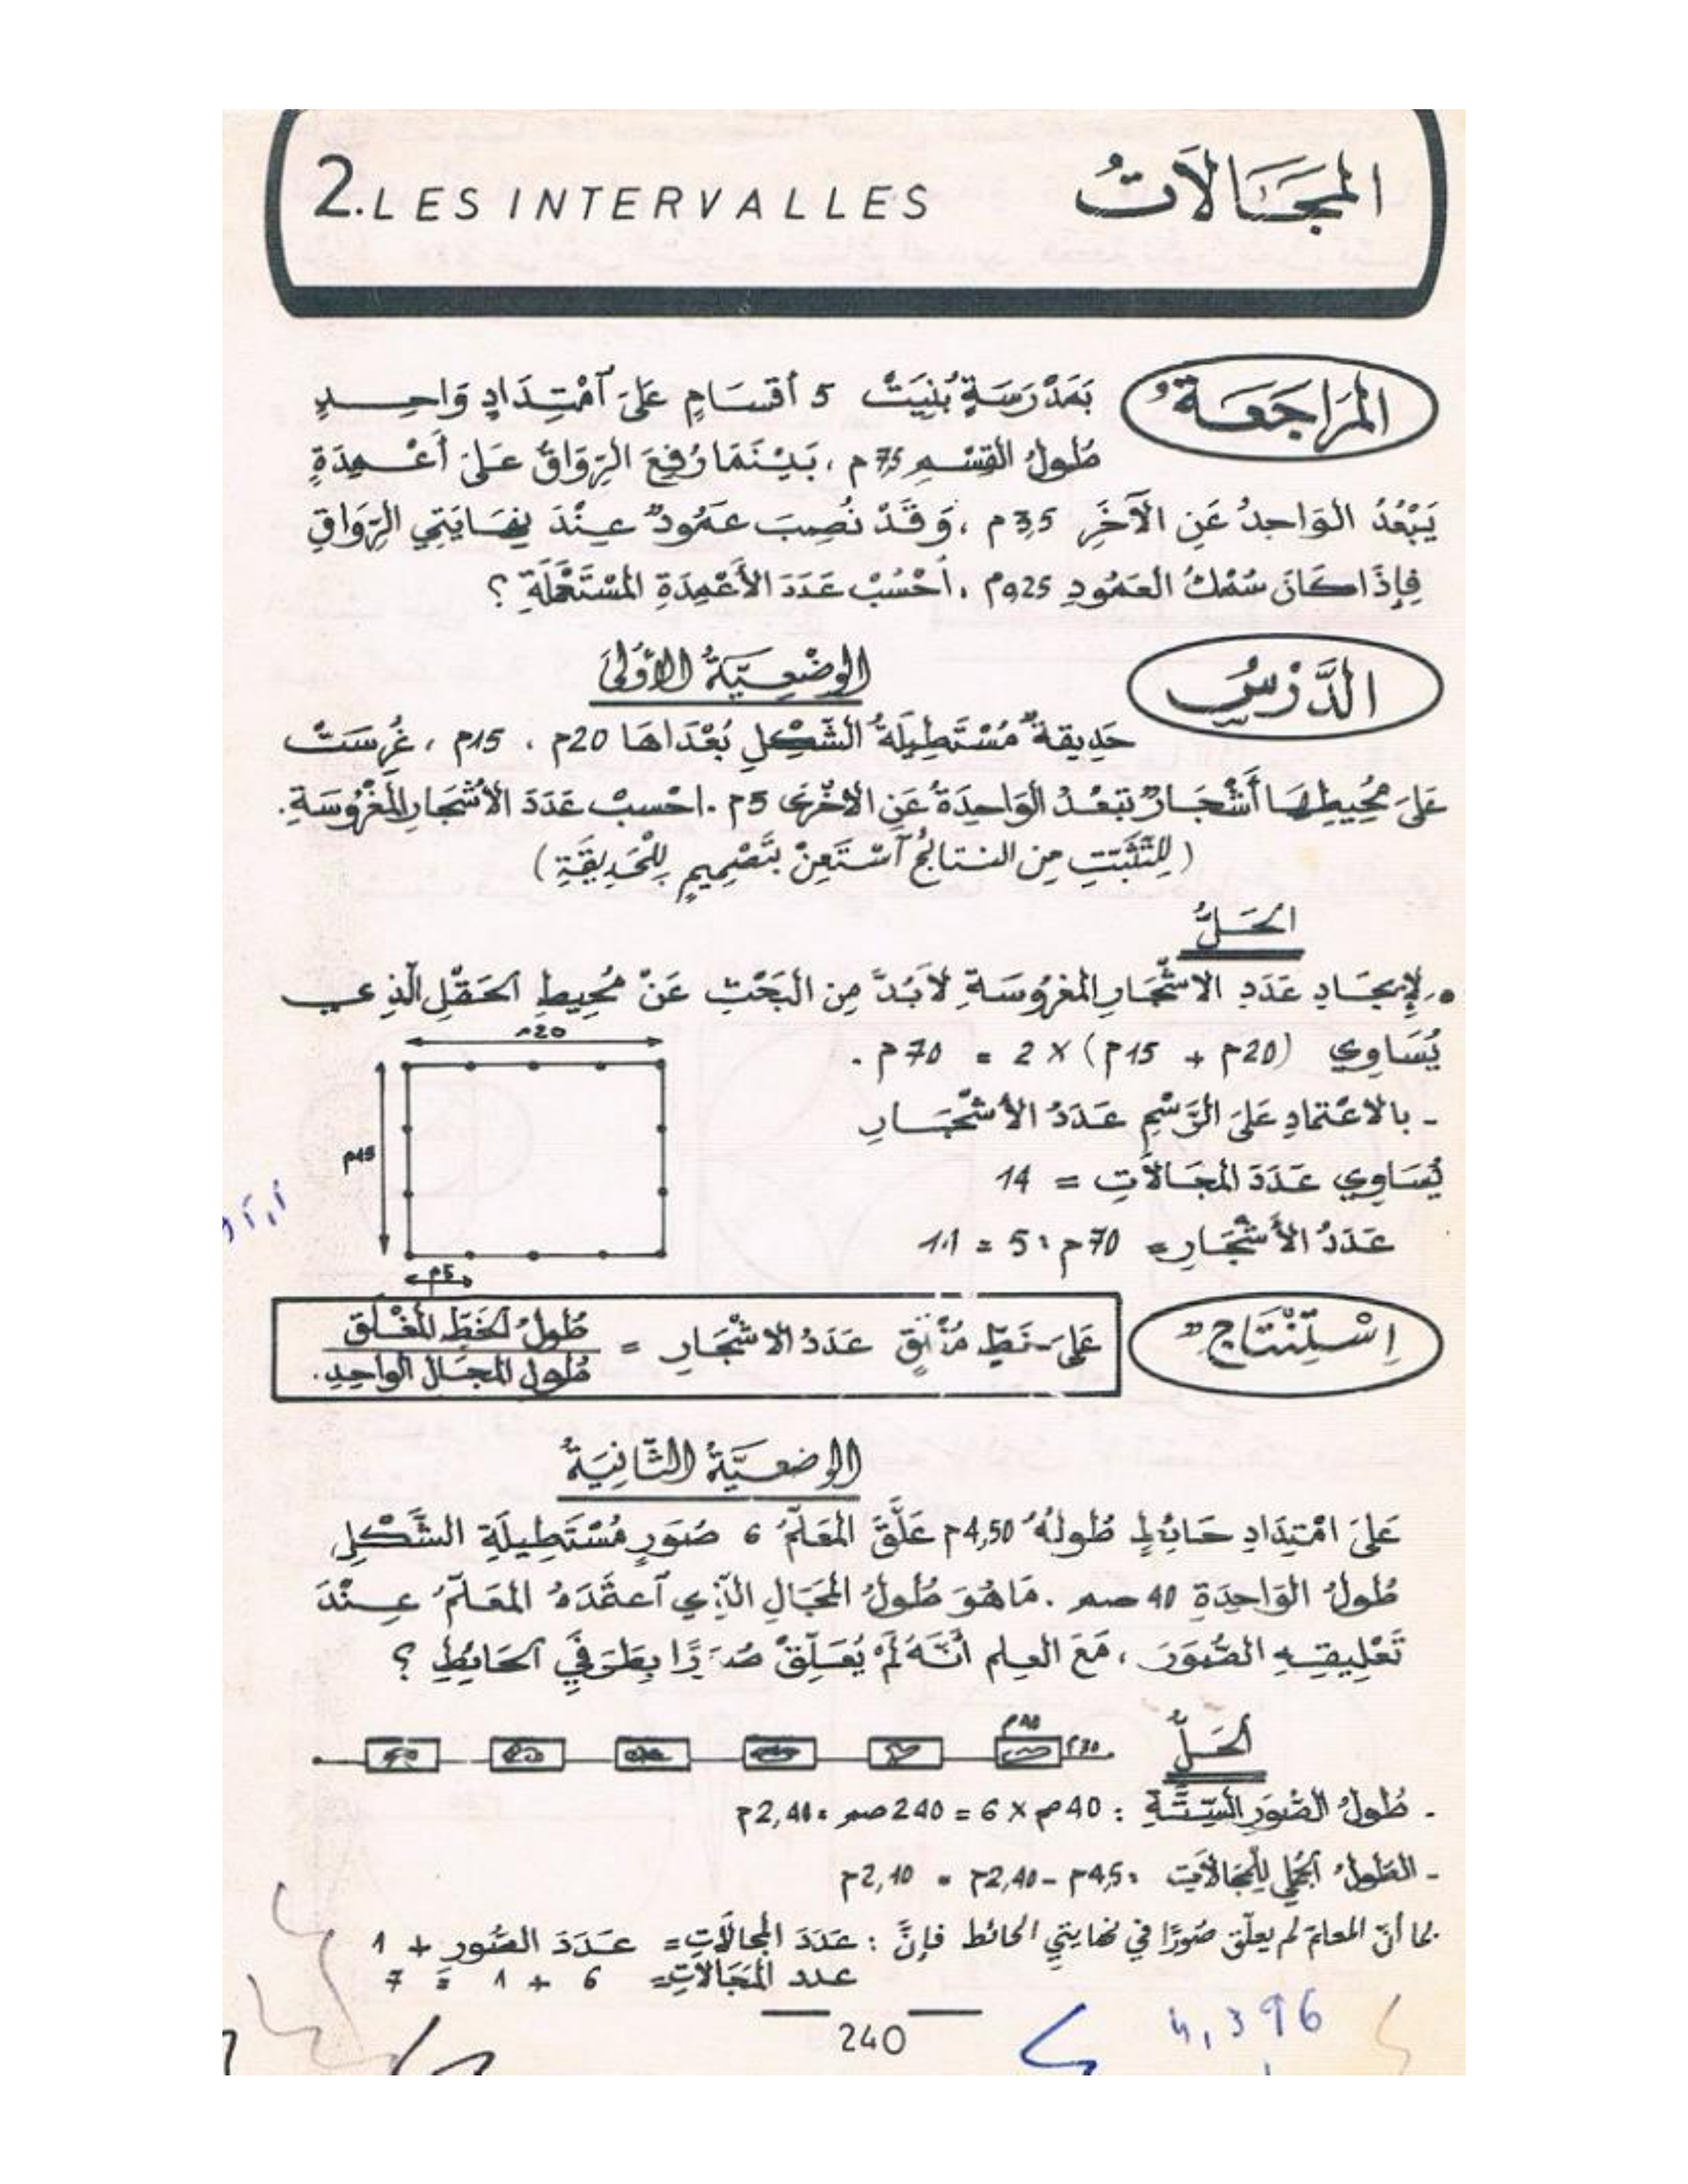 2. LES INTERVALLES
المَجَالَاتُ
المُرَاجَعَةُ
بِمَدْرَسَةٍ بُنِيَتْ 5 أقْسَامٍ عَلَى آمْتِدَادٍ وَاحِدٍ
طُولُ القِسْمِ 7,5م ، بَيْنَمَا رُفِعَ الرِّوَاقُ عَلَى أَعْمِدَةٍ
يَبْعُدُ الوَاحِدُ عَنِ الآخَرِ 3,5م ، وَقَدْ نُصِبَ عَمُودٌ عِنْدَ نِهَايَتَيِ الرِّوَاقِ
فَإِذَا كَانَ سُمْكُ العَمُودِ 0,25م ، اُحْسُبْ عَدَدَ الأَعْمِدَةِ المُسْتَعْمَلَةِ ؟
الدَّرْسُ
الوَضْعِيَّةُ الأُولَى
حَدِيقَةٌ مُسْتَطِيلَةُ الشَّكْلِ بُعْدَاهَا 20م ، 15م ، غُرِسَتْ
عَلَى مُحِيطِهَا أَشْجَارٌ تَبْعُدُ الوَاحِدَةُ عَنِ الأخْرَى 5م . احْسبْ عَدَدَ الأشجَارِ المَغْرُوسَةِ.
(لِلتَّثَبُّتِ مِن النتائجِ آسْتَعِنْ بتَصْمِيمٍ لِلْحَدِيقَةِ)
الحَلُّ
. لإيجَادِ عَدَدِ الاشْجَارِ المغرُوسَةِ لاَبُدَّ مِن البَحْثِ عَنْ مُحِيطِ الحَقْلِ الّذِي
يُسَاوِي (20م + 15م) × 2 = 70م .
- بالاعْتمادِ عَلَى الرَّسْمِ عَدَدُ الأشْجَارِ
يُسَاوِي عَدَدَ المجَالاَتِ = 14
عَدَدُ الأَشْجَارِ = 70م : 5 = 14
20م
15م
5م
اِسْتِنْتَاجٌ
عَلَى خَطٍّ مُغْلَقٍ عَدَدُ الاشْجَارِ = طُولُ الخَطِّ المُغْلَقِ
طُولِ المجَالِ الوَاحِدِ.
الوضعِيَّةُ الثَّانِيَةُ
عَلَى امْتِدَادِ حَائِطٍ طُولُهُ 4,50م عَلَّقَ المعَلِّمُ 6 صُوَرٍ مُسْتَطِيلَةِ الشَّكْلِ
طُولُ الوَاحِدَةِ 40 صم . مَا هُوَ طُولُ المجَالِ الّذِي آعتَمَدَهُ المعَلِّمُ عِنْدَ
تَعْلِيقِهِ الصُّوَرَ ، مَعَ العِلم أنَّهُ لَمْ يُعَلِّقْ صُوَرًا بِطَرَفَيِ الحَائِطِ ؟
الحَلُّ
- طُولُ الصُّوَرِ السِّتَّةِ : 40صم × 6 = 240صم = 2,40م
- الطُولُ الجُملِي لِلْمَجالاَتِ = 4,5م - 2,40م = 2,10م
بما أنّ المعلمَ لم يعلّق صُوَرًا في نهايتي الحائط فإنَّ : عَدَدَ المجالاَتِ = عَدَدَ الصُّورِ + 1
عدد المَجَالاَتِ = 6 + 1 = 7
240